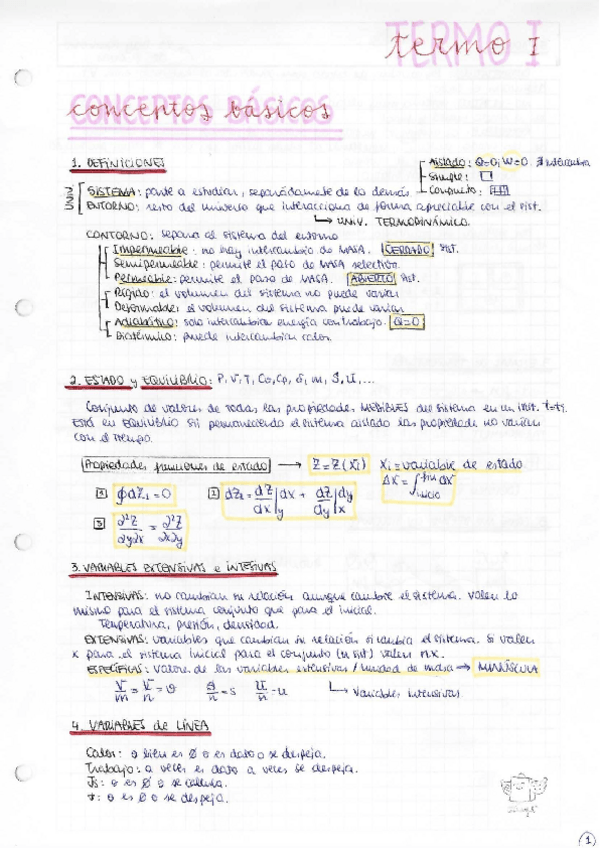 TERMO I
CONCEPTOS BÁSICOS
1. DEFINICIONES
Aislado: Q=0; W=0 ∄ interactúa
Simple:
Compuesto:
SISTEMA: parte a estudiar, separadamente de lo demás
ENTORNO: resto del universo que interacciona de forma apreciable con el sist.
↳ UNIV. TERMODINÁMICO.
CONTORNO: separa al sistema del entorno
Impermeable: no hay intercambio de MASA. CERRADO sist.
Semipermeable: permite el paso de MASA selectivo.
Permeable: permite el paso de MASA. ABIERTO sist.
Rígido: el volumen del sistema no puede variar
Deformable: el volumen del sistema puede variar
Adiabático: solo intercambian energía con trabajo. Q=0
Diatérmico: puede intercambiar calor.
2. ESTADO y EQUILIBRIO: P, V, T, Cv, Cp, δ, m, S, U, ...
Conjunto de valores de todas las propiedades MEDIBLES del sistema en un inst. t=t1.
Está en EQUILIBRIO si permaneciendo el sistema aislado las propiedade no varían
con el tiempo.
Propiedades funciones de estado → Z = Z(Xi) Xi = variable de estado
ΔX = ∫ fin inicio dX
2 ∮dZ1 = 0 1 dZ1 = dZ/dx|y dx + dZ/dy|x dy
3 ∂²Z/∂y∂x = ∂²Z/∂x∂y
3. VARIABLES EXTENSIVAS e INTESIVAS
INTENSIVAS: no cambian su relación aunque cambie el sistema. Valen lo
mismo para el sistema conjunto que para el inicial.
Temperatura, presión, densidad.
EXTENSIVAS: variables que cambian su relación si cambia el sistema. Si valen
x para el sistema inicial para el conjunto (n sist) valen n·x.
ESPECÍFICAS: valores de las variables extensivas / unidad de masa → MINÚSCULA
V/m = V/n = v S/n = s U/n = u ↳ Variables intensivas
4. VARIABLES de LÍNEA
Calor: o bien es Ø o es dato o se despeja.
Trabajo: a veces es dato a veces se despeja.
Js: o es Ø o se calcula.
σ: o es Ø o se despeja.
1